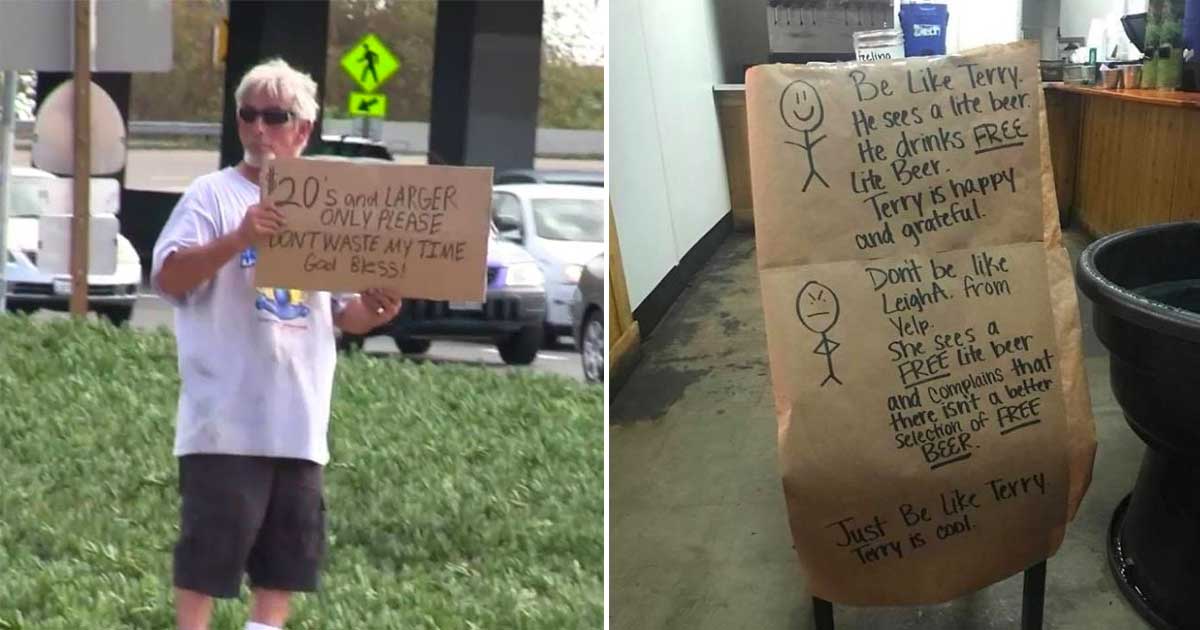 $20's and LARGER
ONLY PLEASE
DONT WASTE MY TIME
God Bless!
Be Like Terry.
He sees a lite beer.
He drinks FREE
Lite Beer.
Terry is happy
and grateful.
Don't be like
LeighA. from
Yelp.
She sees a
FREE lite beer
and complains that
there isn't a better
selection of FREE
BEER.
Just Be Like Terry.
Terry is cool.